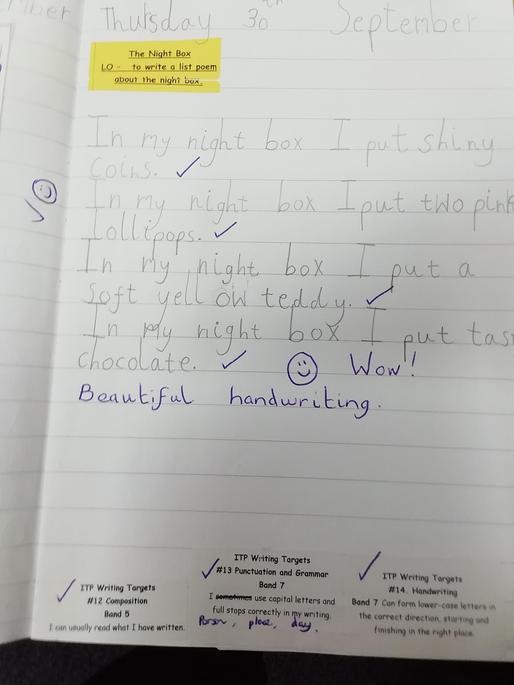 Thursday 30th September
The Night Box
LO - to write a list poem
about the night box.
In my night box I put shiny
coins.
In my night box I put two pink
Lollipops.
In my night box I put a
soft yell ow teddy.
In my night box I put
chocolate. Wow!
Beautiful handwriting.
ITP Writing Targets
#12 Composition
Band 5
I can usually read what I have written.
ITP Writing Targets
#13 Punctuation and Grammar
Band 7
I sometimes use capital letters and
full stops correctly in my writing.
Person, place, day.
ITP Writing Targets
#14. Handwriting
Band 7 Can form lower-case letters in
the correct direction, starting and
finishing in the right place.